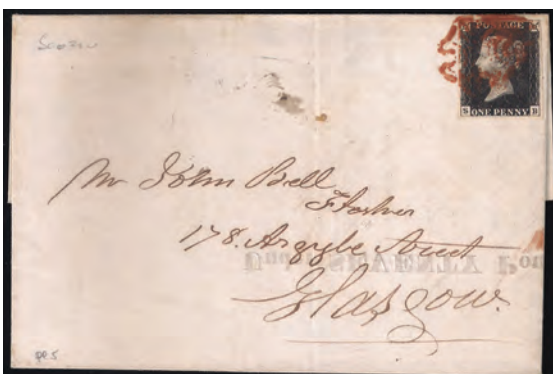 POSTAGE
ONE PENNY
Mr John Bell
Flesher
178. Argyle Street
Glasgow.